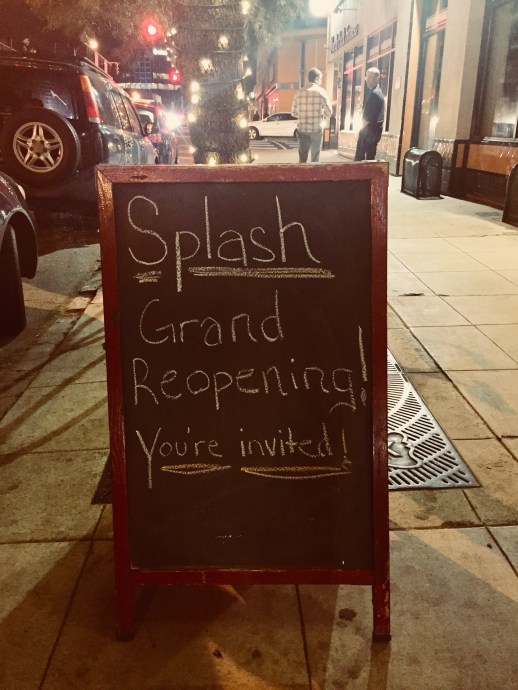 Splash
Grand
Reopening!
You're invited!